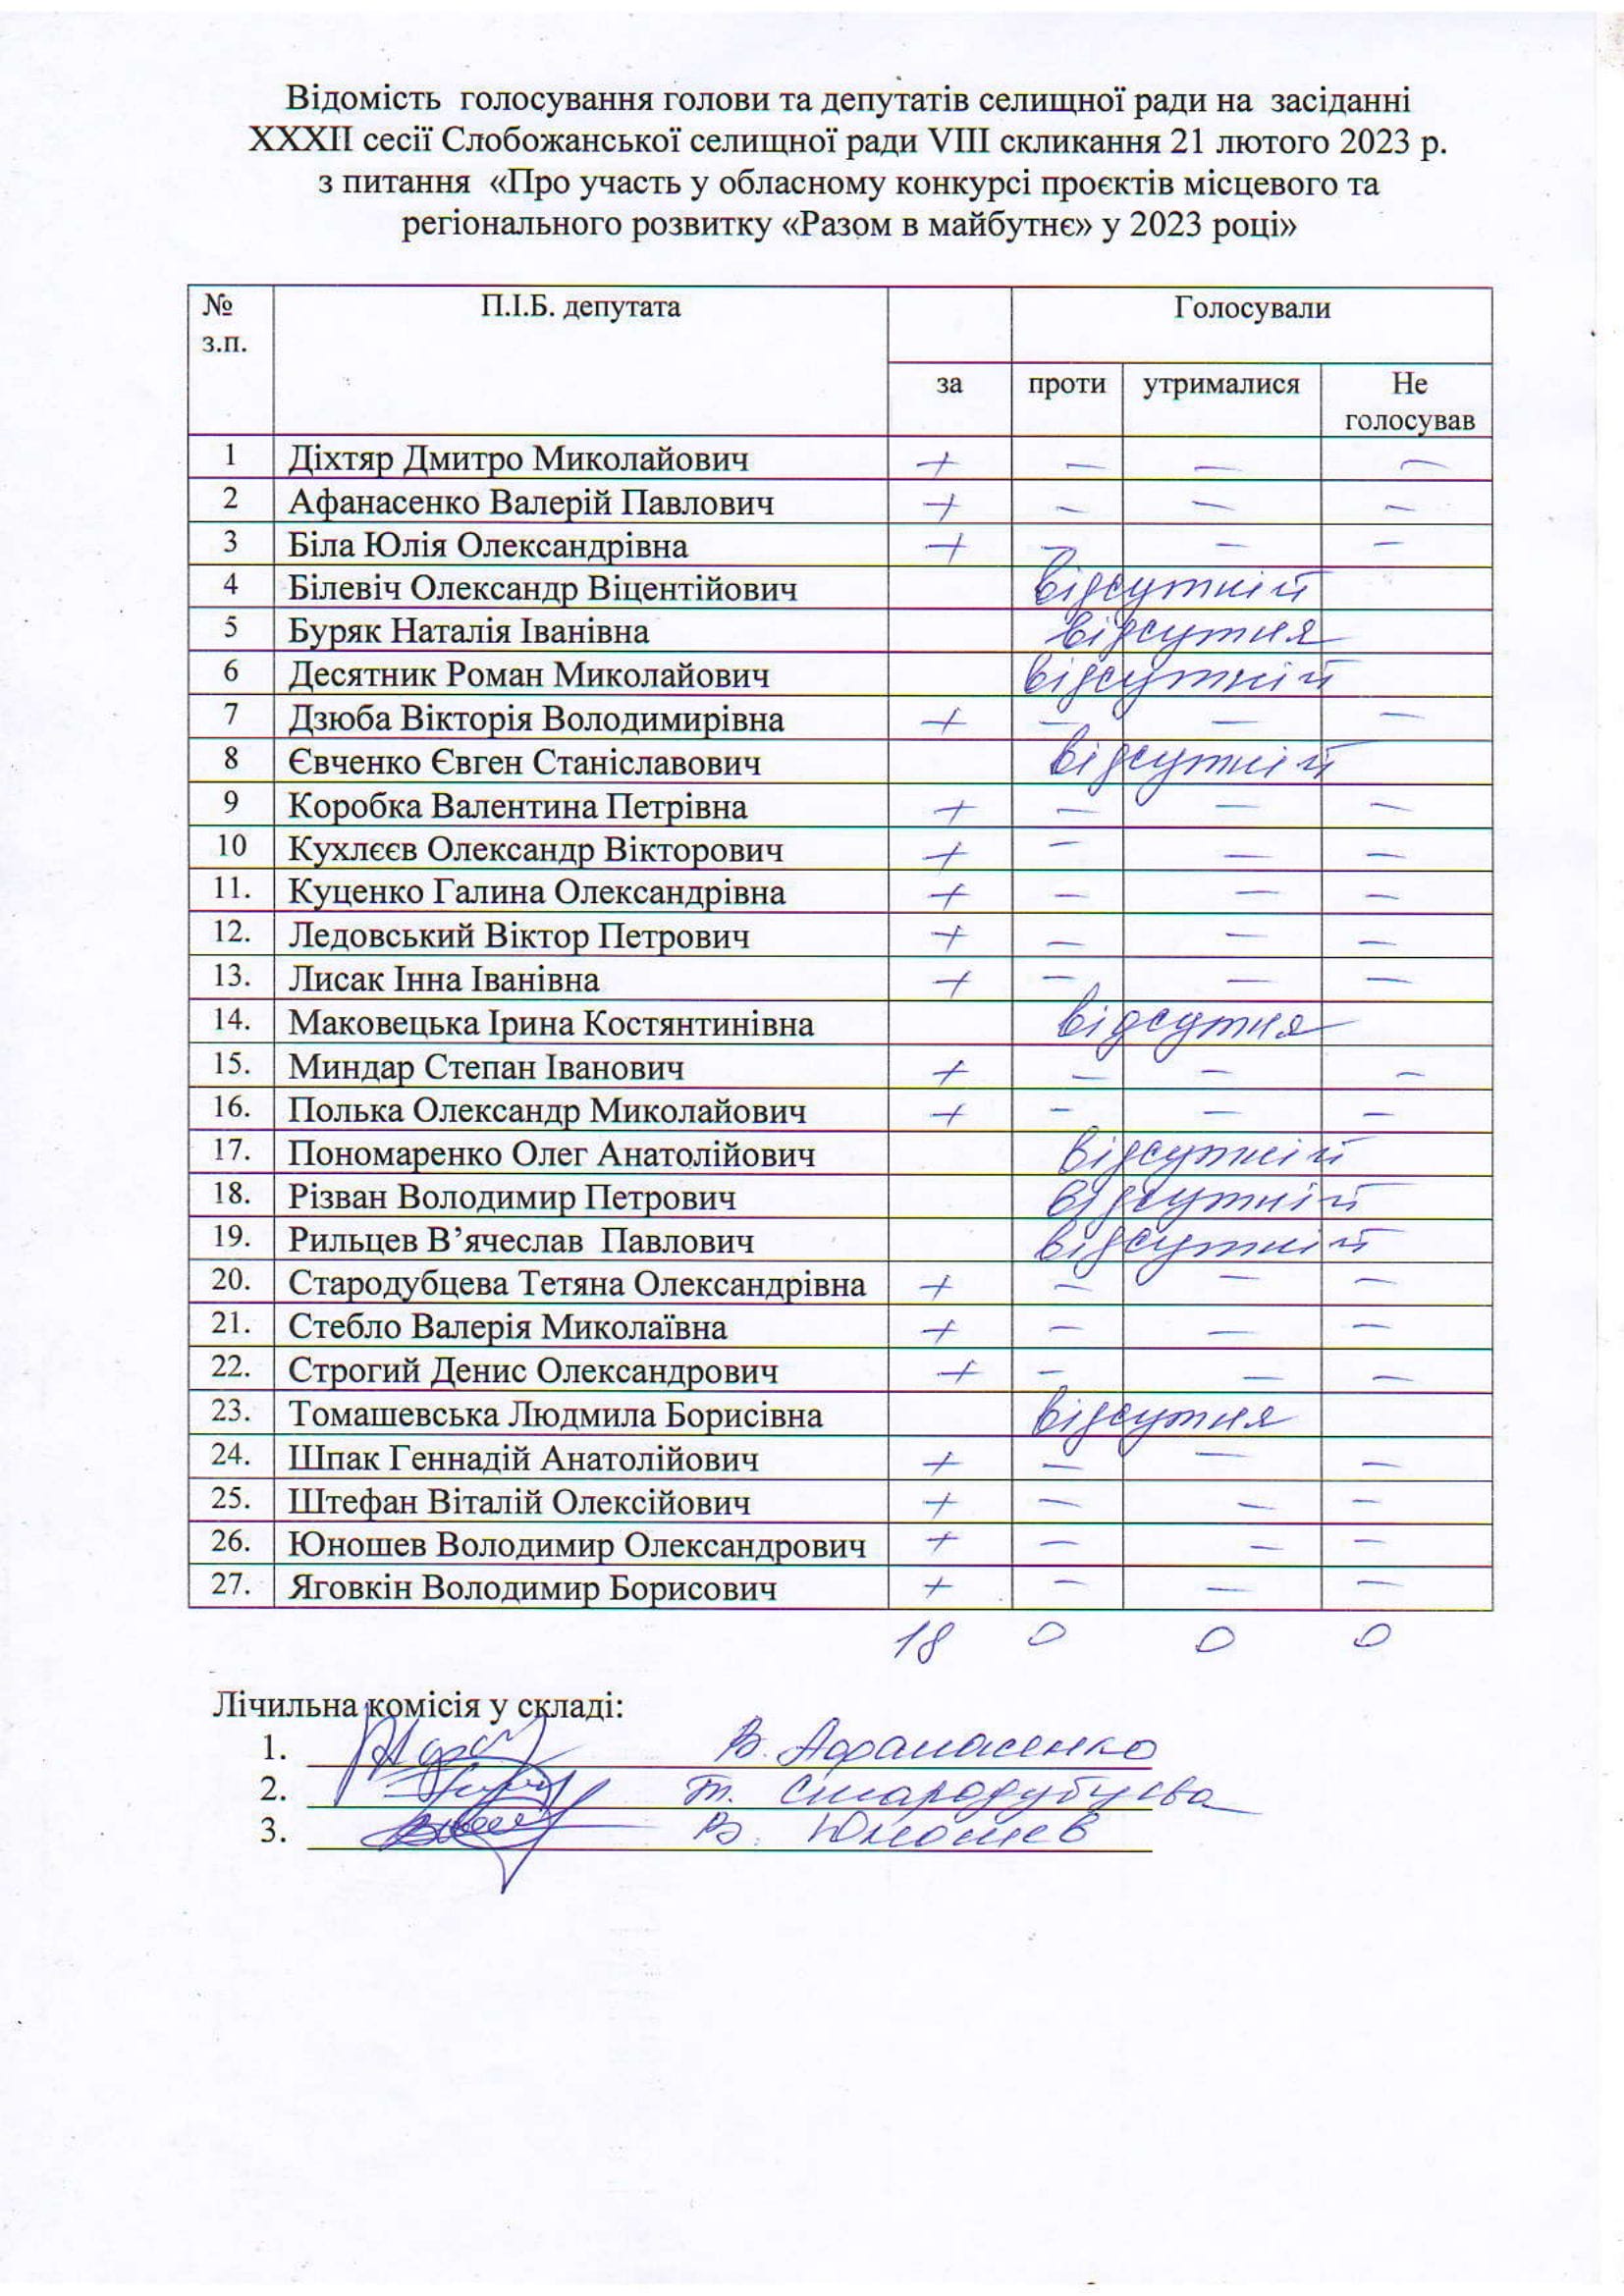 Відомість голосування голови та депутатів селищної ради на засіданні
XXXII сесії Слобожанської селищної ради VIII скликання 21 лютого 2023 р.
з питання «Про участь у обласному конкурсі проєктів місцевого та
регіонального розвитку «Разом в майбутнє» у 2023 році»
№ з.п. П.І.Б. депутата Голосували
за проти утрималися Не голосував
1 Діхтяр Дмитро Миколайович + — — —
2 Афанасенко Валерій Павлович + — — —
3 Біла Юлія Олександрівна + — — —
4 Білевіч Олександр Віцентійович відсутній
5 Буряк Наталія Іванівна відсутня
6 Десятник Роман Миколайович відсутній
7 Дзюба Вікторія Володимирівна + — — —
8 Євченко Євген Станіславович відсутній
9 Коробка Валентина Петрівна + — — —
10 Кухлєєв Олександр Вікторович + — — —
11. Куценко Галина Олександрівна + — — —
12. Ледовський Віктор Петрович + — — —
13. Лисак Інна Іванівна + — — —
14. Маковецька Ірина Костянтинівна відсутня
15. Миндар Степан Іванович + — — —
16. Полька Олександр Миколайович + — — —
17. Пономаренко Олег Анатолійович відсутній
18. Різван Володимир Петрович відсутній
19. Рильцев В’ячеслав Павлович відсутній
20. Стародубцева Тетяна Олександрівна + — — —
21. Стебло Валерія Миколаївна + — — —
22. Строгий Денис Олександрович + — — —
23. Томашевська Людмила Борисівна відсутня
24. Шпак Геннадій Анатолійович + — — —
25. Штефан Віталій Олексійович + — — —
26. Юношев Володимир Олександрович + — — —
27. Яговкін Володимир Борисович + — — —
18 0 0 0
Лічильна комісія у складі:
1. В. Афанасенко
2. Т. Стародубцева
3. В. Юношев